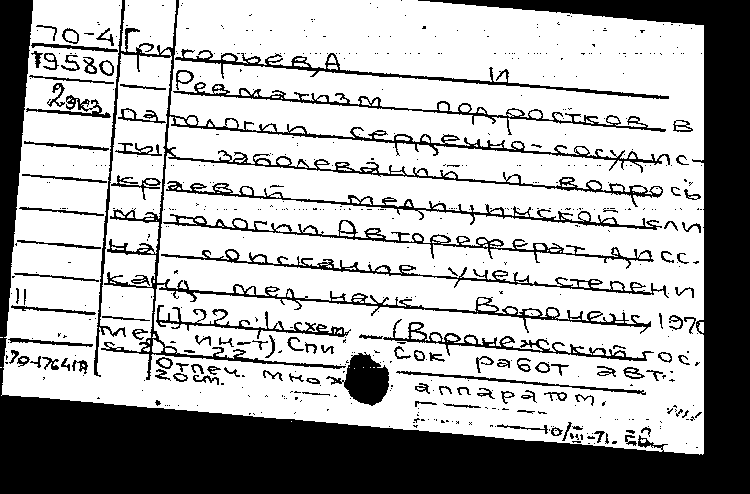 70-4
19580
2 экз.
Григорьев, А И
Ревматизм подростков в
патологии сердечно-сосудис-
тых заболеваний и вопросы
краевой медицинской кли
матологии. Автореферат дисс.
на соискание учен. степени
канд. мед. наук. Воронеж, 1970
[1], 22 с., 1 л. схем. (Воронежский гос.
мед. ин-т). Список работ авт.:
с. 20-22.
Отпеч. множ аппаратом.
20 ст.
II
70-17641А
10/III-71.